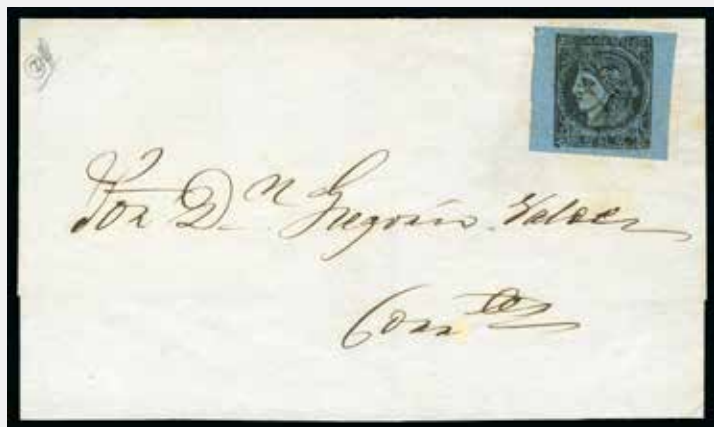 Sor Dn Gregorio Valdez
Corrtes